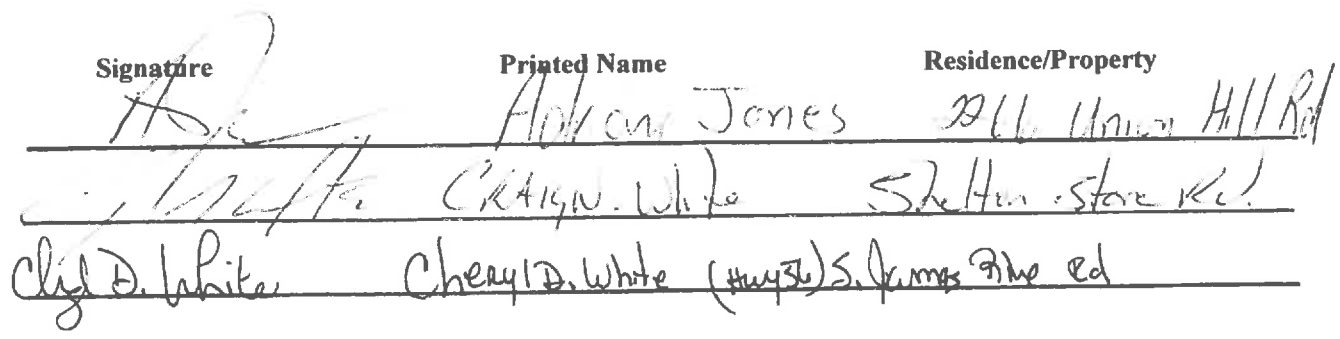 Signature Printed Name Residence/Property
Jones Union Hill Rd
CRAIG N. White Shelton Store Rd.
D. White Cheryl D. White (Hwy 56) S. James Rd